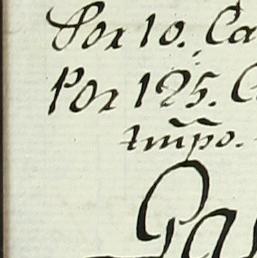 Por 10. Ca
Por 125. C
tmpo.
Pa